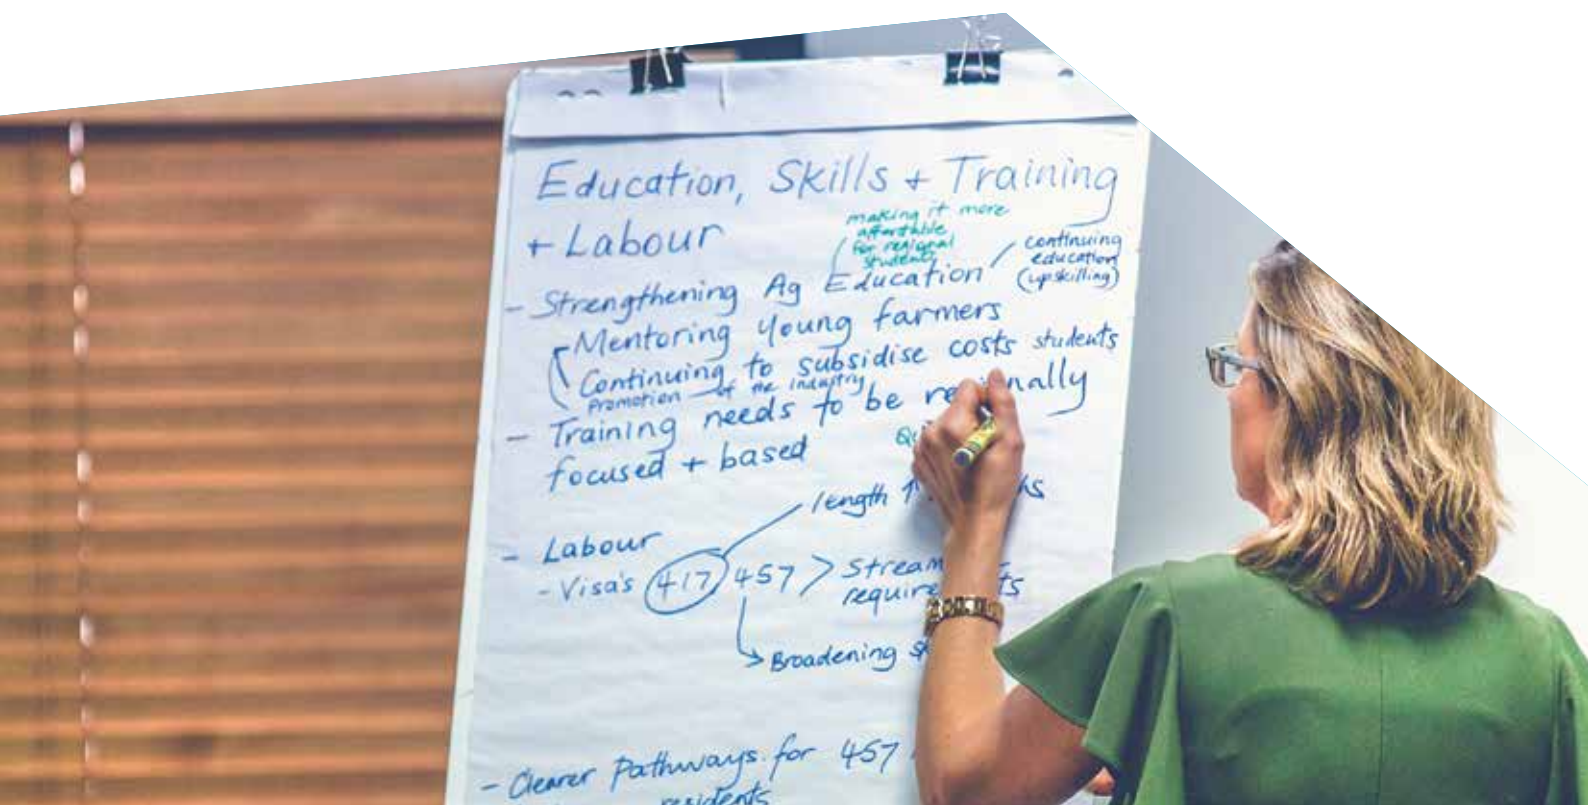 Education, Skills + Training
+ Labour
making it more
affordable
for regional
students
continuing
education
(upskilling)
- Strengthening Ag Education
Mentoring young farmers
Continuing to subsidise costs students
Promotion of the industry
- Training needs to be
focused + based
length
- Labour
- Visa's 417 457 >
Broadening
- Clearer Pathways for 457
residents